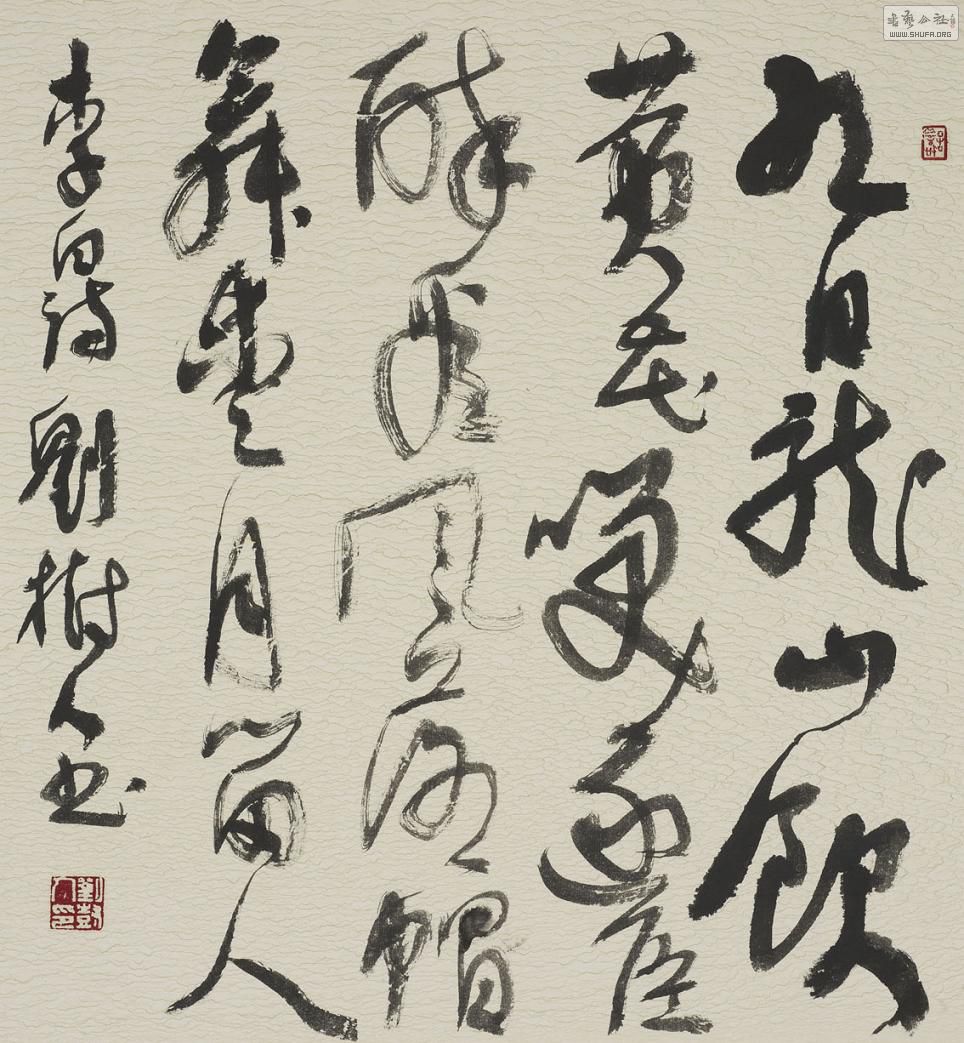 九日龙山饮
黄花笑逐臣
醉看风落帽
舞爱月留人
李白诗 劉樹人书
WWW.SHUFA.ORG